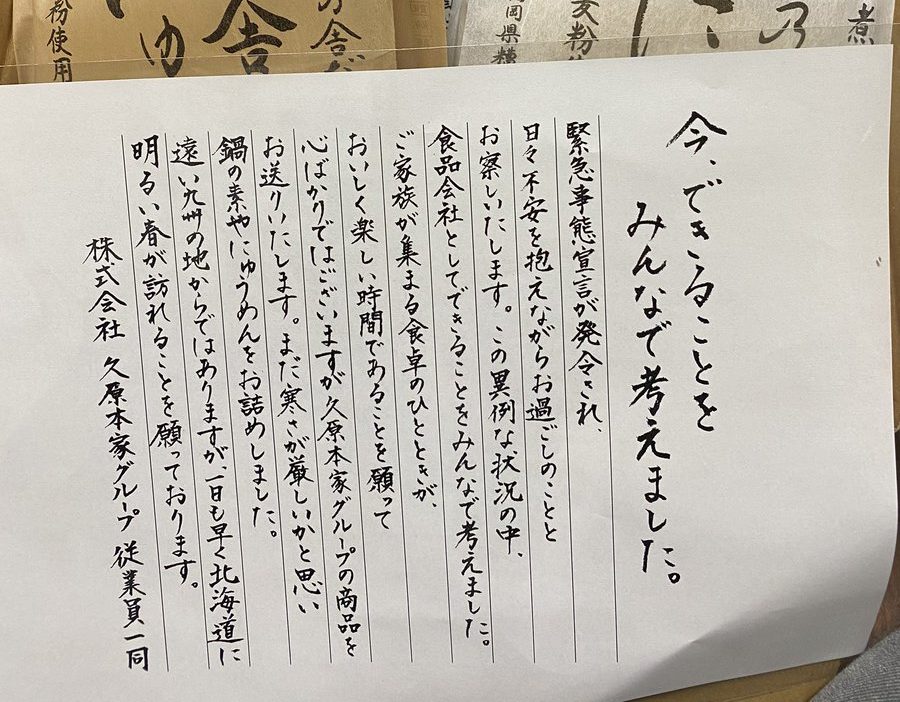 今、できることを
みんなで考えました。
緊急事態宣言が発令され、
日々不安を抱えながらお過ごしのことと
お察しいたします。この異例な状況の中、
食品会社としてできることをみんなで考えました。
ご家族が集まる食卓のひとときが、
おいしく楽しい時間であることを願って
心ばかりではございますが久原本家グループの商品を
お送りいたします。まだ寒さが厳しいかと思い
鍋の素やにゅうめんをお詰めしました。
遠い九州の地からではありますが、一日も早く北海道に
明るい春が訪れることを願っております。
株式会社 久原本家グループ 従業員一同
粉使用
ゅ
舎
の舎だ
岡県糟
乃
煮